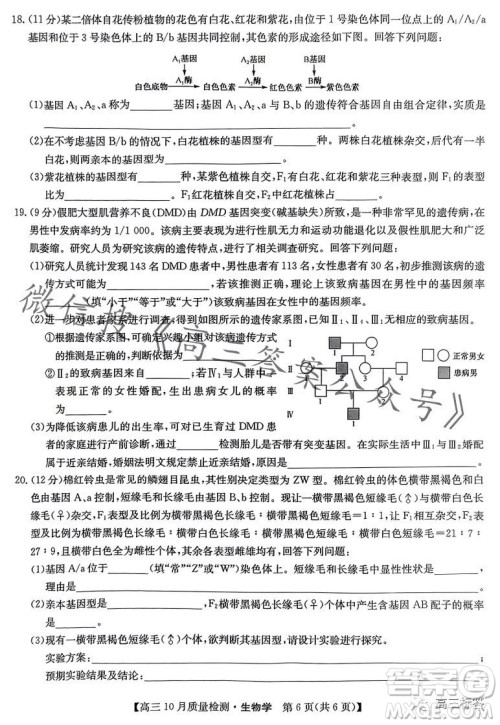 18.(11分)某二倍体自花传粉植物的花色有白花、红花和紫花,由位于1号染色体同一位点上的A₁/A₂/a
基因和位于3号染色体上的B/b基因共同控制,其色素的形成途径如下图。回答下列问题:
A₁基因 A₂基因 B基因
白色底物 A₁酶 白色色素 A₂酶 红色色素 B酶 紫色色素
(1)基因A₁、A₂、a称为______基因;基因A₁、A₂、a与B、b的遗传符合基因自由组合定律,实质是
(2)在不考虑基因B/b的情况下,白花植株的基因型有______种。两株白花植株杂交,后代有一半
白花,则两亲本的基因型为______。
(3)紫花植株的基因型有______种,某紫色植株自交,F₁有红花和紫花两种表现型,则F₁的表型及比
例为______。F₁红花植株自交,子代的表型及比例为______。
19.(9分)假肥大型肌营养不良(DMD)由DMD基因突变(碱基缺失)所致,是一种非常罕见的遗传病,在
男性中发病率约为1/1 000。该病主要影响男孩的运动功能,患者肌无力并伴有小腿腓肠肌肥大和广泛
肌萎缩。研究人员为研究该病的遗传特点,进行了相关研究。回答下列问题:
(1)研究人员统计发现143名DMD患者中,男性患者有113名,女性患者有30名,初步推测该病的遗
传方式为______。若推测正确,理论上该致病基因在男性中的基因频率
(填“小于”“等于”或“大于”)该致病基因在女性中的基因频率。
(2)对该病患者家系进行调查,得到如图所示的遗传家系图,回答下列问题:
①根据遗传家系图,可推测兴趣小组对该病遗传方
式的推测正确,判断的依据是
②Ⅱ₂的致病基因来自______;若Ⅳ₁与一表
现正常的女性婚配,生出患病女儿的概率为
Ⅰ Ⅱ Ⅲ Ⅳ
正常男女
患病男
(3)为降低该病患儿的出生率,可对有该病史的
家庭进行产前诊断,通过______检测胎儿是否带有致病基因。在实际生活中Ⅲ₁与Ⅲ₂婚配
属于近亲结婚,禁止近亲结婚的原因是
20.(12分)棉红铃虫是常见的鳞翅目昆虫,其性别决定类型为ZW型。棉红铃虫的体色横带黑褐色和白色
由基因A、a控制,短缘毛和长缘毛由基因B、b控制。现让一横带黑褐色短缘毛(♀)与一横带黑褐色长
缘毛(♂)杂交,F₁横带黑褐色短缘毛:横带黑褐色长缘毛=1:1,让F₁横带黑褐色短缘毛雌雄相互交
配,F₂的表型及比例为横带黑褐色短缘毛:横带黑褐色长缘毛:白色短缘毛:白色长缘毛=21:7:
27:9,回答下列问题:
(1)基因A/a位于______(填“常”“Z”或“W”)染色体上。短缘毛和长缘毛中显性性状是______,
理由是______。
(2)亲本的基因型为______。F₂横带黑褐色长缘毛(♀)个体中产生含基因AB配子的概率
是______。
(3)现有一横带黑褐色短缘毛(♂)个体,欲判断其基因型。请设计实验并预期结果。
实验方案:
预期实验结果:
【高三10月质量检测·生物学 第6页(共6页)】
微信搜《高三答案公众号》